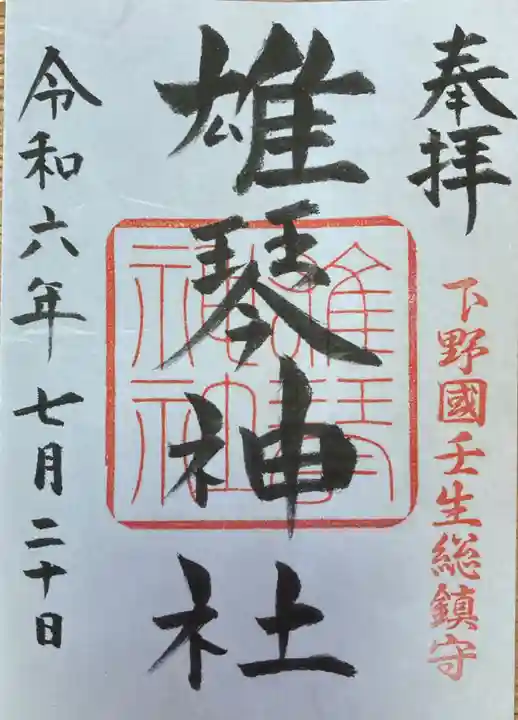 奉拝
下野國壬生総鎮守
雄琴神社
雄琴神社
令和六年七月二十日